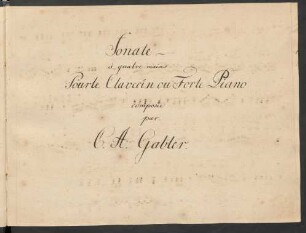 Sonate
a quatre mains
Pour le Clavecin ou Forte Piano
composé
par
C. A. Gabler